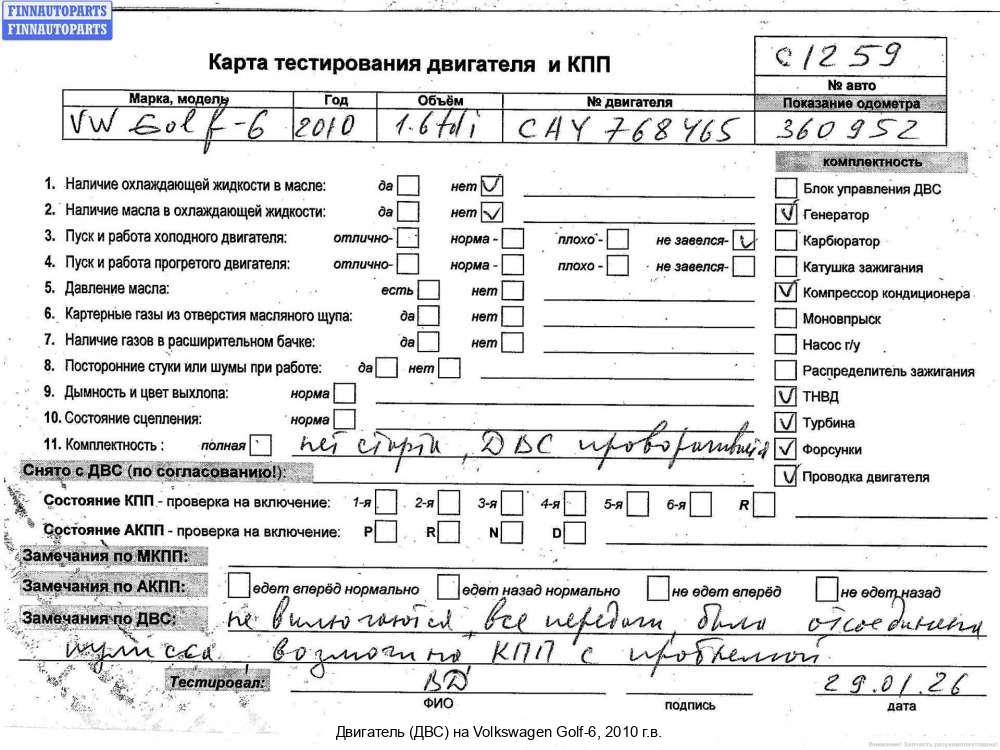 FINNAUTOPARTS
FINNAUTOPARTS
Карта тестирования двигателя и КПП
C1259
№ авто
Марка, модель Год Объём № двигателя Показание одометра
VW Golf-6 2010 1.6 tdi CAY 768465 360952
комплектность
1. Наличие охлаждающей жидкости в масле: да нет Блок управления ДВС
2. Наличие масла в охлаждающей жидкости: да нет Генератор
3. Пуск и работа холодного двигателя: отлично- норма - плохо - не завелся- Карбюратор
4. Пуск и работа прогретого двигателя: отлично- норма - плохо - не завелся- Катушка зажигания
5. Давление масла: есть нет Компрессор кондиционера
6. Картерные газы из отверстия масляного щупа: да нет Моновпрыск
7. Наличие газов в расширительном бачке: да нет Насос г/у
8. Посторонние стуки или шумы при работе: да нет Распределитель зажигания
9. Дымность и цвет выхлопа: норма ТНВД
10. Состояние сцепления: норма Турбина
11. Комплектность : полная нет старта, ДВС Форсунки
Снято с ДВС (по согласованию!): Проводка двигателя
Состояние КПП - проверка на включение: 1-я 2-я 3-я 4-я 5-я 6-я R
Состояние АКПП - проверка на включение: P R N D
Замечания по МКПП:
Замечания по АКПП: едет вперёд нормально едет назад нормально не едет вперёд не едет назад
Замечания по ДВС: не включаются все передачи, была отсоединена
кулисса возможно КПП с проблемой
Тестировал: ВД 29.01.26
ФИО подпись дата
Двигатель (ДВС) на Volkswagen Golf-6, 2010 г.в.